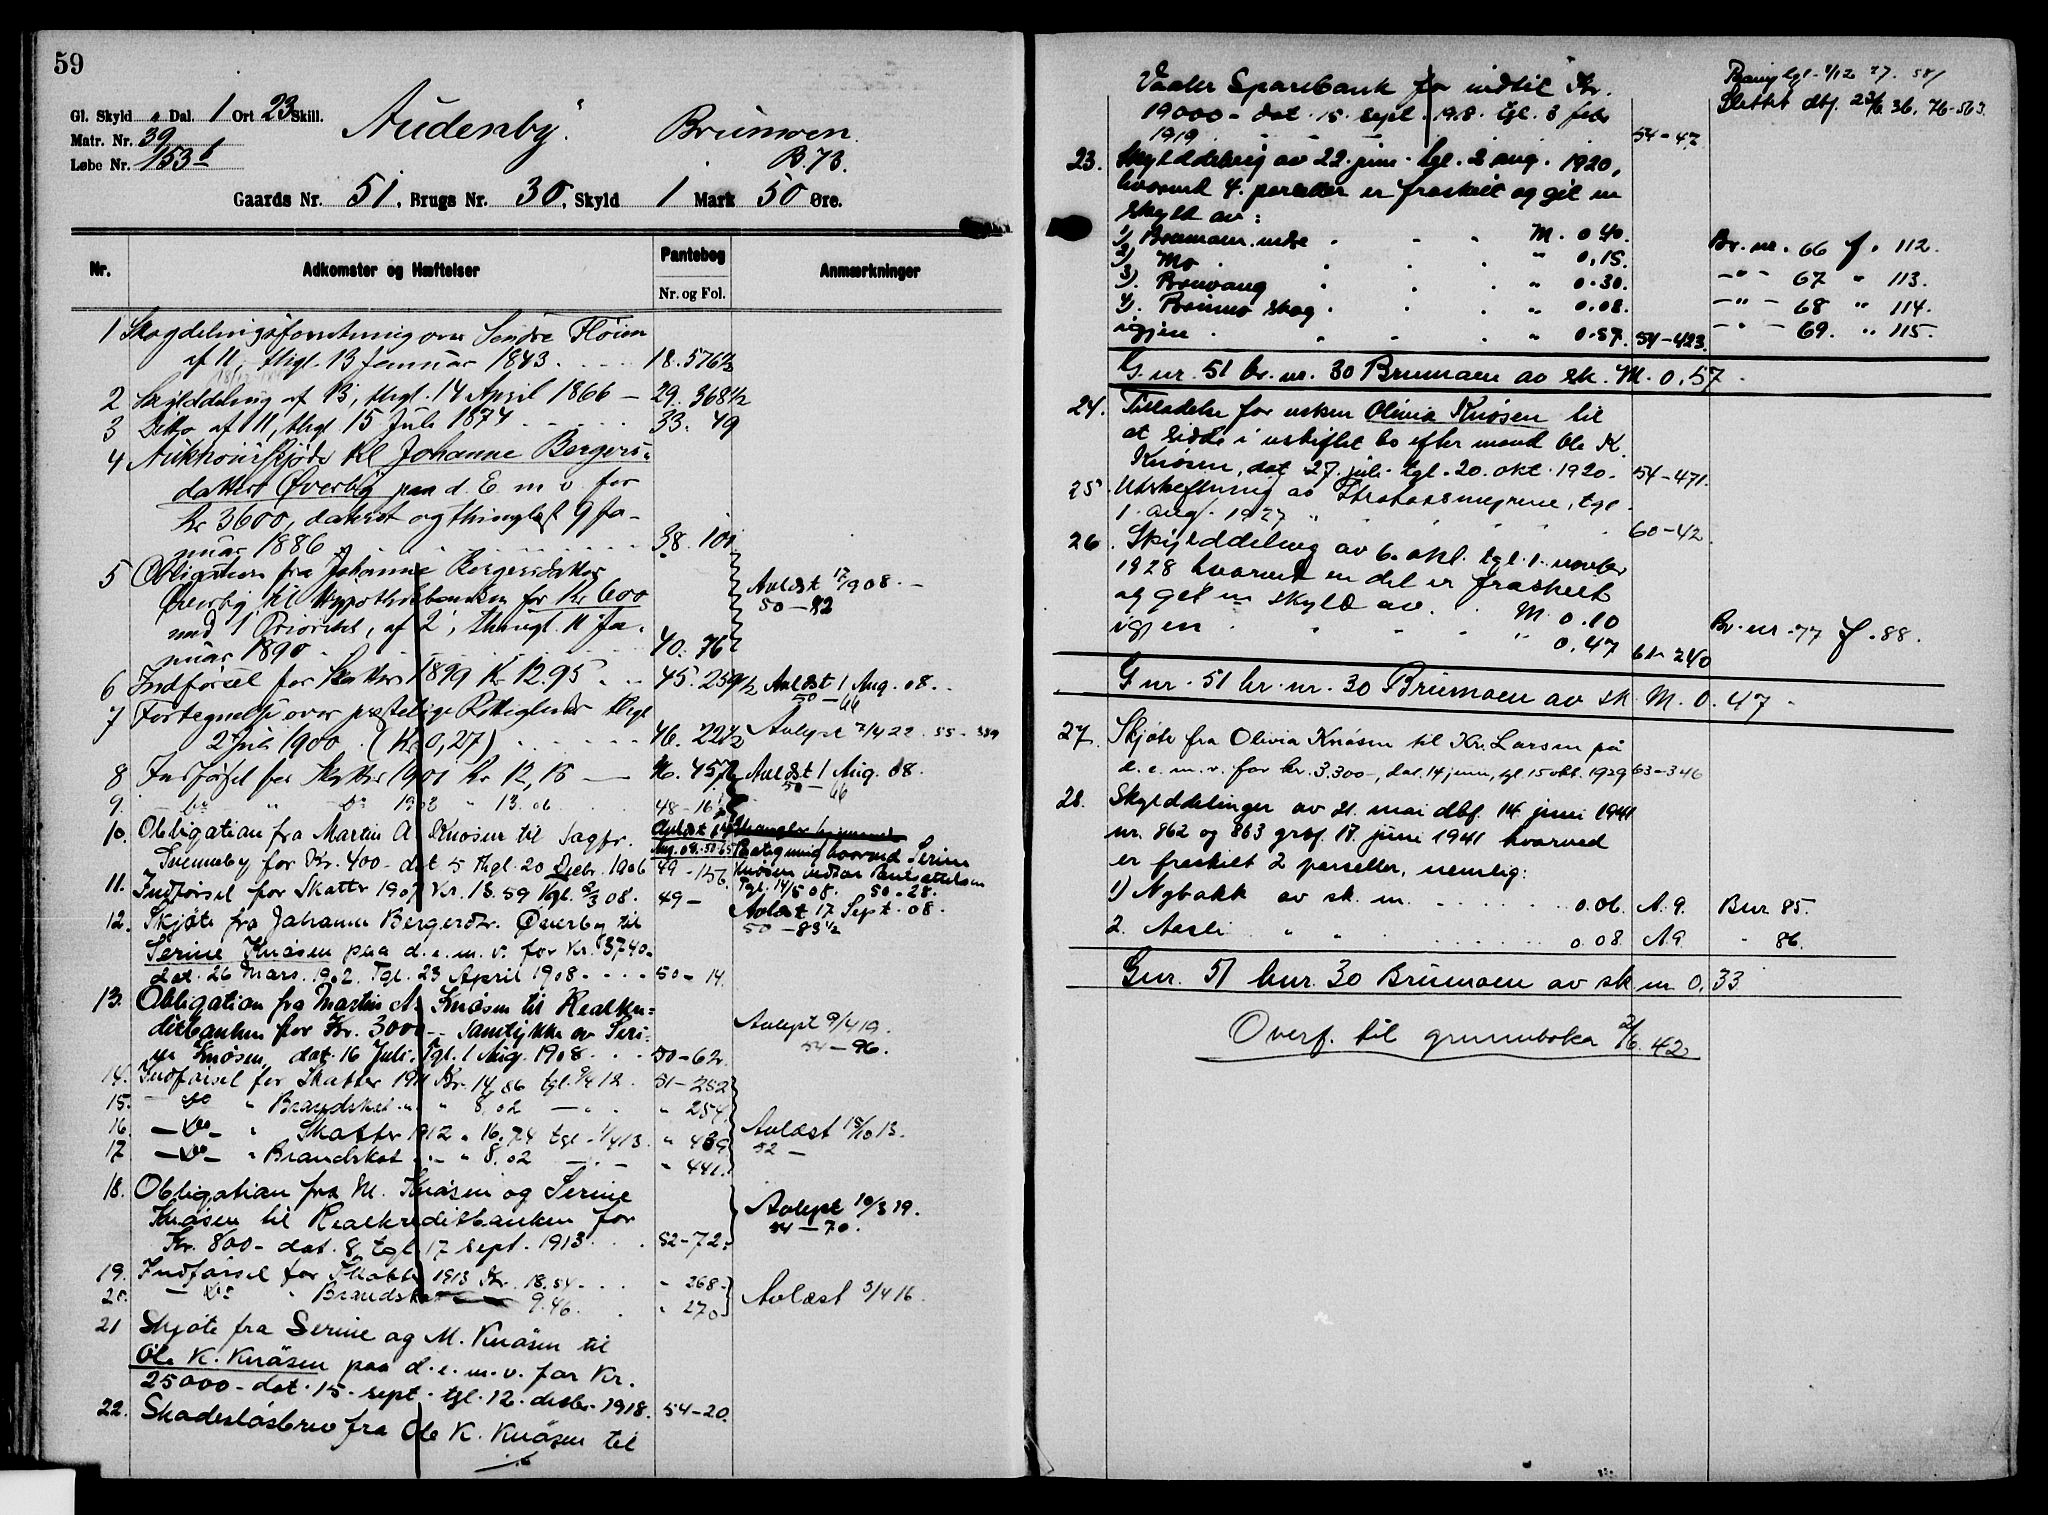 59
Gl. Skyld " Dal. 1 Ort 23 Skill.
Matr. Nr. 39
Løbe Nr. 153
Audenby. Brumoen
B. 73.
Gaards Nr. 51, Brugs Nr. 30, Skyld 1 Mark 50 Øre.
Nr. Adkomster og Hæftelser Pantebog Nr. og Fol. Anmærkninger
1 Skogdelingsforretning over Søndre Fløien
af 11, thgl. 13 Januar 1843. 18. 576 1/2
2 Skylddeling af 13, thgl. 14 April 1866 — 29. 368 1/2
3 Ditto af 11, thgl 15 Juli 1874 33. 49
4 Auktionsskjøde til Johanne Bergers-
datter Øverby paa d. E. m v. for
Kr 3600, dateret og thinglæst 9 Ja-
nuar 1886 38. 101
5 Obligation fra Johanne Bergersdatter Avlæst 17/9 08. —
Øverby til Hypothekbanken for Kr 600 50 — 82
med 1 Prioritet, af 2, thingl. 11 Ja-
nuar 1890. 40. 76
6 Indførsel for Skatter 1899 Kr 12.95 45. 259 1/2 Avlæst 1 Aug. 08.
50 — 66
7 Fortegnelse over præstelige Rettigheder thgl
2 Juli 1900. (Kr 0,27) 46. 22 1/2 Avlyst 7/4 22 55 - 389
8 Indførsel for Skatter 1901 Kr 12,15 — 46. 457 Avlæst 1 Aug. 08.
50 — 66
9. — do " do 1902 " 13. 06 48 - 16
10. Obligation fra Martin A. Knøsen til Sagfr. Avlæst 14
Svenneby for Kr. 400 - dat 5 Thgl. 20 Decbr. 1906 49 - 156.
Aug. 08. 50-65 hvorved Serine
Knøsen indfør
Tgl. 14/5 08. 50 - 28.
11. Indførsel for Skatter 1907 Kr. 13. 59 Tgl. 2/3 08. 49 — Avlæst 17 Sept. 08.
50 — 83 1/2
12. Skjøte fra Johanne Bergerdtr. Øverby til
Serine Knøsen paa d. e. m. v. for Kr. 3740-
dat. 26 Mars. 1902. Tgl. 23 April 1908 50 — 14.
13. Obligation fra Martin A. Knøsen til Realkre-
ditbanken for Kr. 3000 — Samtykke av Seri-
ne Knøsen, dat. 16 Juli. Tgl. 1 Aug. 1908 50 - 62. Avlyst 9/4 19.
54 — 96.
14. Indførsel for Skatter 1911 Kr. 14,86 tgl. 9/4 12. 51 — 252
15. — do " Brandskat " 8,02 — " 254
16. — do — " Skatter 1912 " 16.74 tgl. 1/4 13. " 439 Avlæst 18/10 13.
52 —
17 — do — " Brandskat " 8.02 — " 441.
18. Obligation fra M. Knøsen og Serine
Knøsen til Realkreditbanken for
Kr. 800 - dat. 8, tgl 17 sept. 1913 52 - 72. Avlyst 10/3 19.
54 — 70.
19. Indførsel for Skatter 1913 Kr. 18.54 " 268 Avlæst 3/4 16.
20. — do " Brandskat 9.46 " 270
21 Skjøte fra Serine og M. Knøsen til
Ole K. Knøsen paa d. e. m. v. for Kr.
25000 - dat. 15. sept. tgl. 12. desbr. 1918. 54 - 20.
22. Skadesløsbrev fra Ole K. Knøsen til
Vaaler Sparebank for indtil Kr.
19000 - dat. 15. sept. 1918. tgl. 3 febr
1919 54 - 47
Slettet dbf. 23/6 36. 76 - 563.
23. Skylddeling av 22. juni. tgl. 2 aug. 1920,
hvorved 4. parceller er fraskilt og git en
skyld av:
1) Brumoen indre M. 0 40. Br. nr. 66 f. 112.
2) Mo " 0,15. — " — 67 " 113.
3). Bruvang " 0.30. — " — 68 " 114.
4). Brumo skog " 0.08. — " — 69. " 115.
igjen " 0.57. 54 - 423.
G. nr. 51 br. nr. 30 Brumoen av sk. M. 0,57.
24. Tilladelse for enken Olivia Knøsen til
at sidde i uskiftet bo efter mand Ole K.
Knøsen, dat 27. juli. tgl. 20. okt. 1920. 54 - 471.
25. Utskiftning av tgl.
1. aug. 1927 60 - 42.
26. Skylddeling av 6. okt. tgl. 1. novbr
1928 hvorved en del er fraskilt
og git en skyld av. M. 0.10 Br. nr. 77 f. 88.
igjen " 0.47 61 - 240
G nr. 51 br. nr. 30 Brumoen av sk. M. 0. 47.
27. Skjøte fra Olivia Knøsen til Kr. Larsen på
d. e. m. v. for kr. 3.300 -, dat. 14 juni, tgl. 15 okt. 1929 63 - 346
28. Skylddelinger av 21. mai dbf. 14 juni 1941
nr. 862 og 863 grbf. 17. juni 1941 hvorved
er fraskilt 2 parseller, nemlig:
1) Nybakk av sk. m. 0.06. A. 9. Bnr 85.
2. Aasli " " " 0.08. A. 9. " 86.
Gnr. 51 bnr. 30 Brumoen av sk m 0,33
Overf. til grunnboka 2/6. 42.